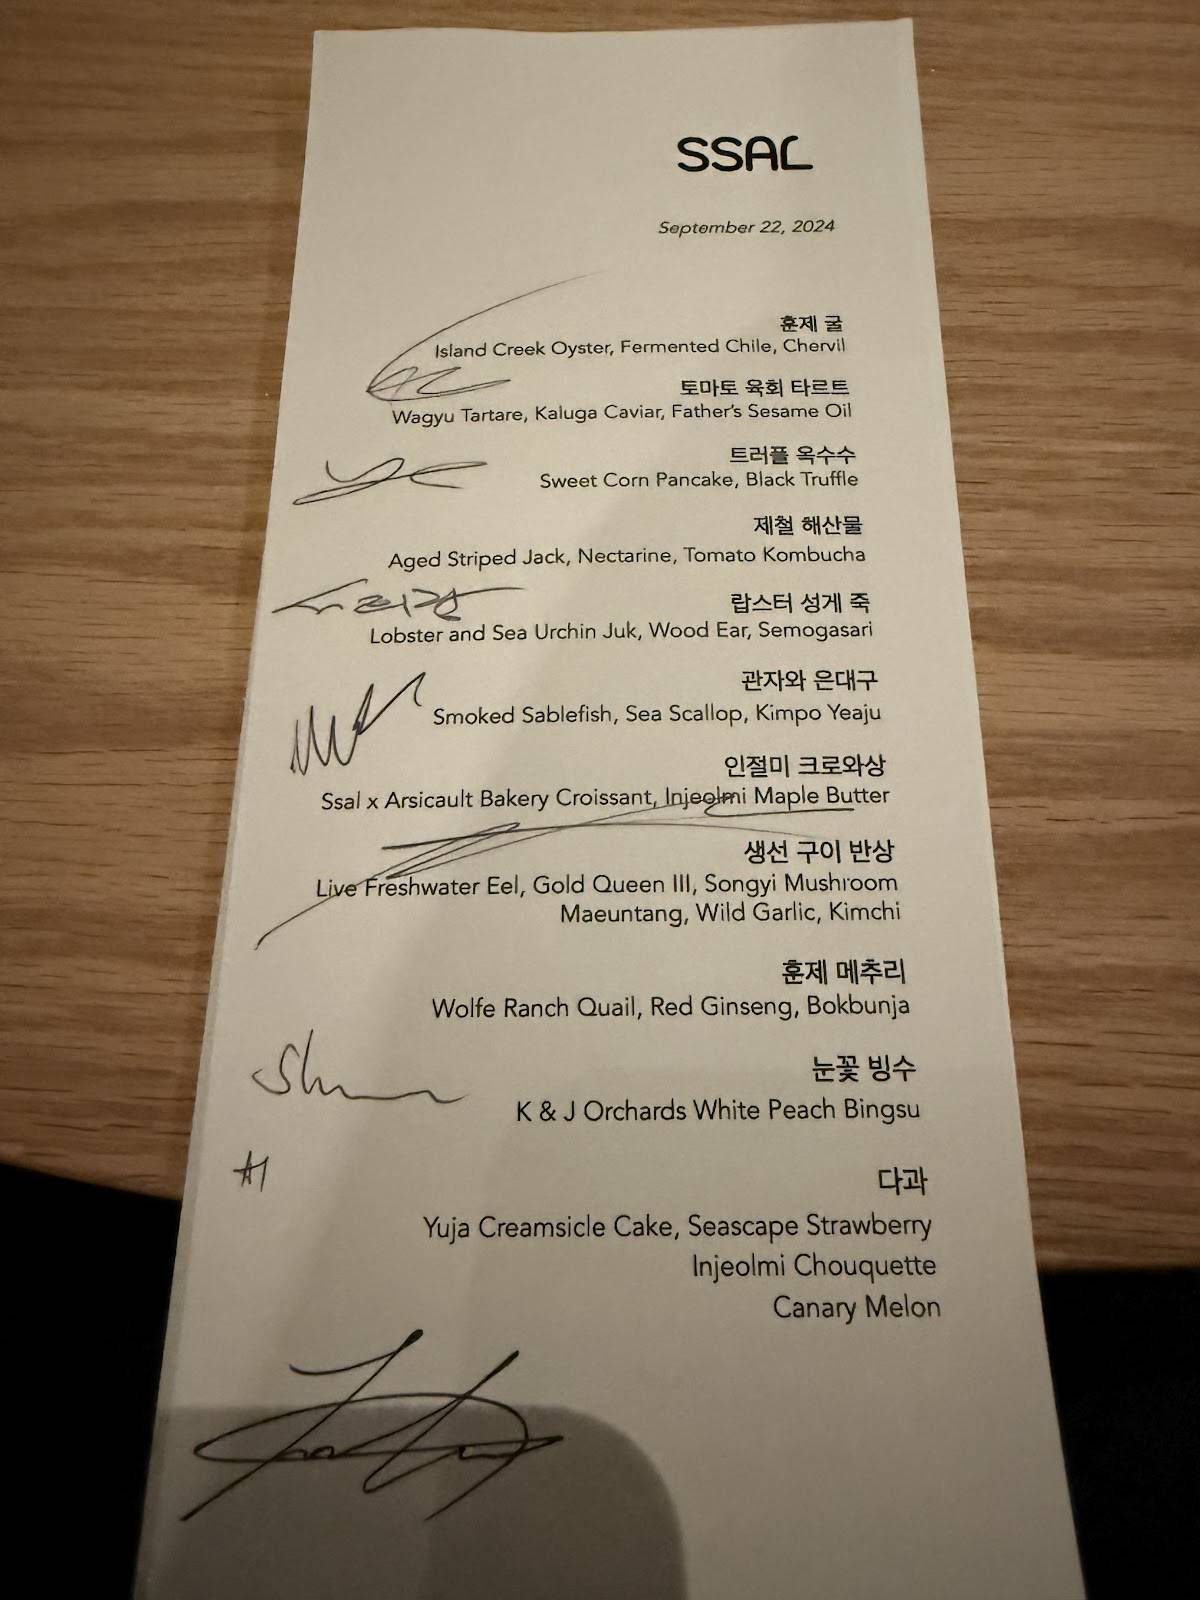 SSAL
September 22, 2024
훈제 굴
Island Creek Oyster, Fermented Chile, Chervil
토마토 육회 타르트
Wagyu Tartare, Kaluga Caviar, Father's Sesame Oil
트러플 옥수수
Sweet Corn Pancake, Black Truffle
제철 해산물
Aged Striped Jack, Nectarine, Tomato Kombucha
랍스터 성게 죽
Lobster and Sea Urchin Juk, Wood Ear, Semogasari
관자와 은대구
Smoked Sablefish, Sea Scallop, Kimpo Yeaju
인절미 크로와상
Ssal x Arsicault Bakery Croissant, Injeolmi Maple Butter
생선 구이 반상
Live Freshwater Eel, Gold Queen III, Songyi Mushroom
Maeuntang, Wild Garlic, Kimchi
훈제 메추리
Wolfe Ranch Quail, Red Ginseng, Bokbunja
눈꽃 빙수
K & J Orchards White Peach Bingsu
다과
Yuja Creamsicle Cake, Seascape Strawberry
Injeolmi Chouquette
Canary Melon